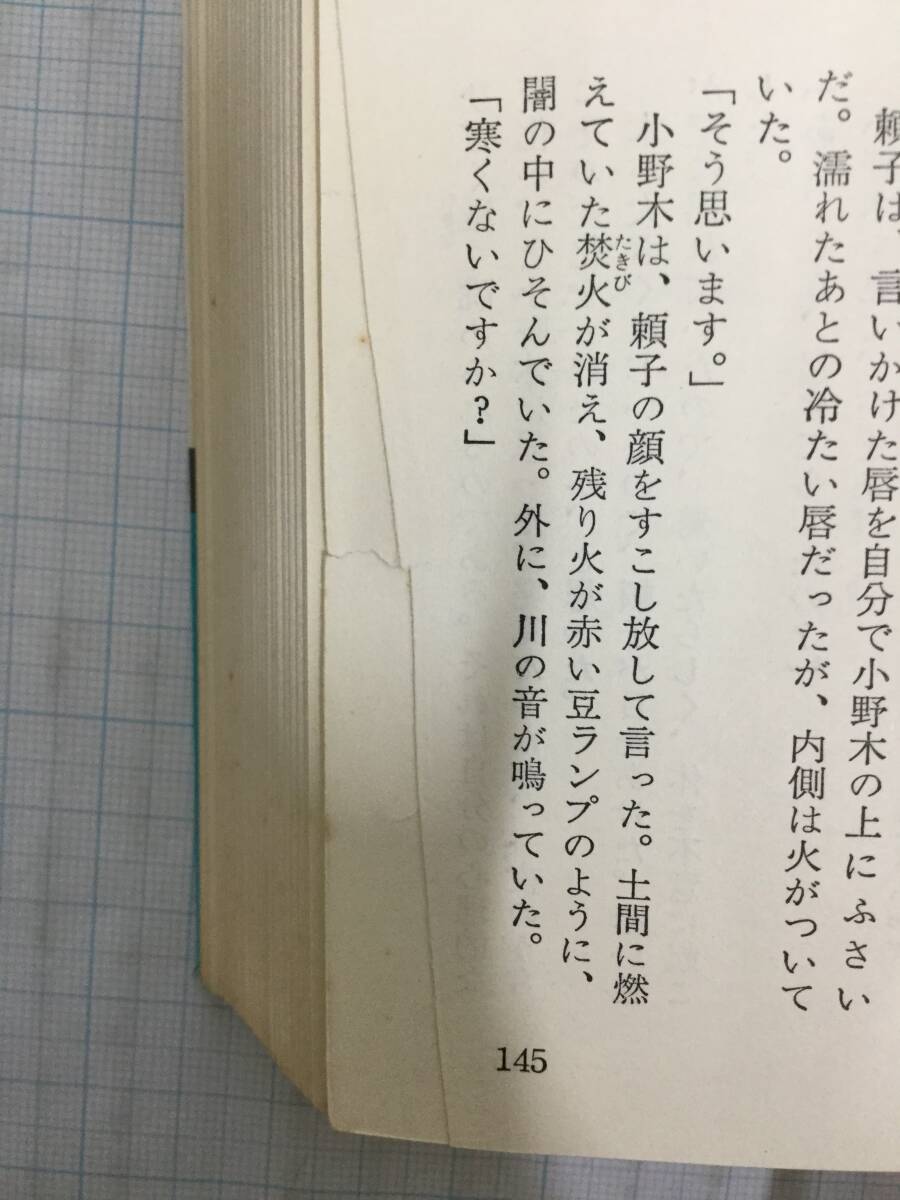 頼子は、言いかけた唇を自分で小野木の上にふさい
だ。濡れたあとの冷たい唇だったが、内側は火がついて
いた。
「そう思います。」
小野木は、頼子の顔をすこし放して言った。土間に燃
えていた焚火が消え、残り火が赤い豆ランプのように、
たきび
闇の中にひそんでいた。外に、川の音が鳴っていた。
「寒くないですか？」
145